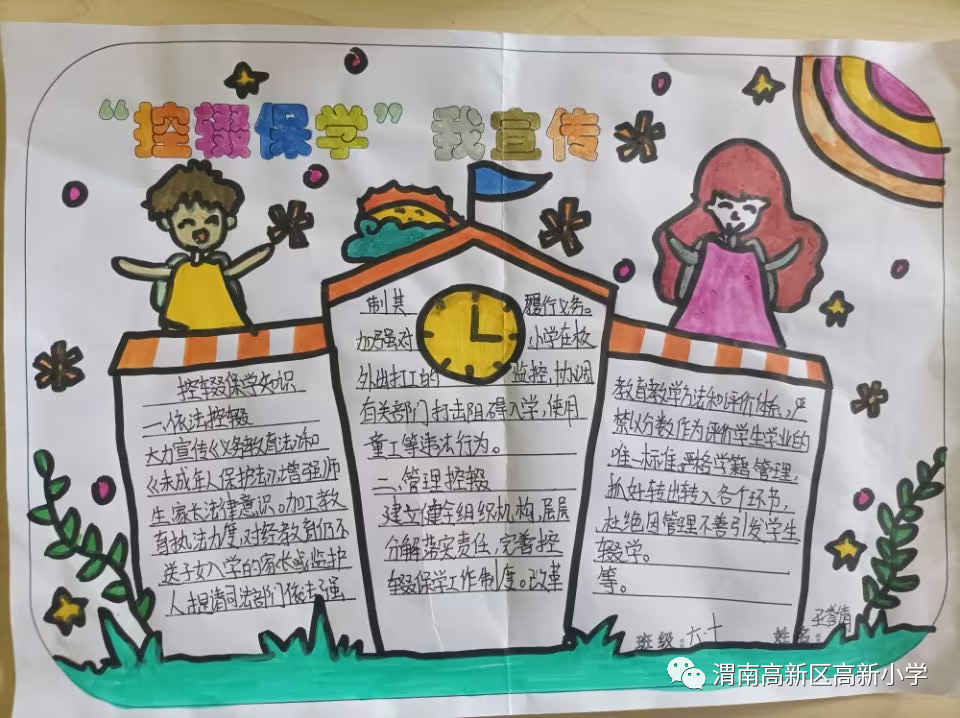 “控辍保学” 我宣传
控辍保学知识
一、依法控辍
大力宣传《义务教育法》和
《未成年人保护法》,增强师
生、家长法律意识。加工教
育执法力度,对经教育仍不
送子女入学的家长或监护
人提请司法部门依法强
制其 履行义务。
加强对 小学在校
外出打工的 监控,协调
有关部门打击阻碍入学,使用
童工等违法行为。
二、管理控辍
建立健全组织机构,层层
分解落实责任,完善控
辍保学工作制度。改革
教育教学方法和评价体系,严
禁以分数作为评价学生学业的
唯一标准,严格学籍管理,
抓好转出转入各个环节,
杜绝因管理不善引发学生
辍学。
等。
班级:六.十 姓名:
渭南高新区高新小学